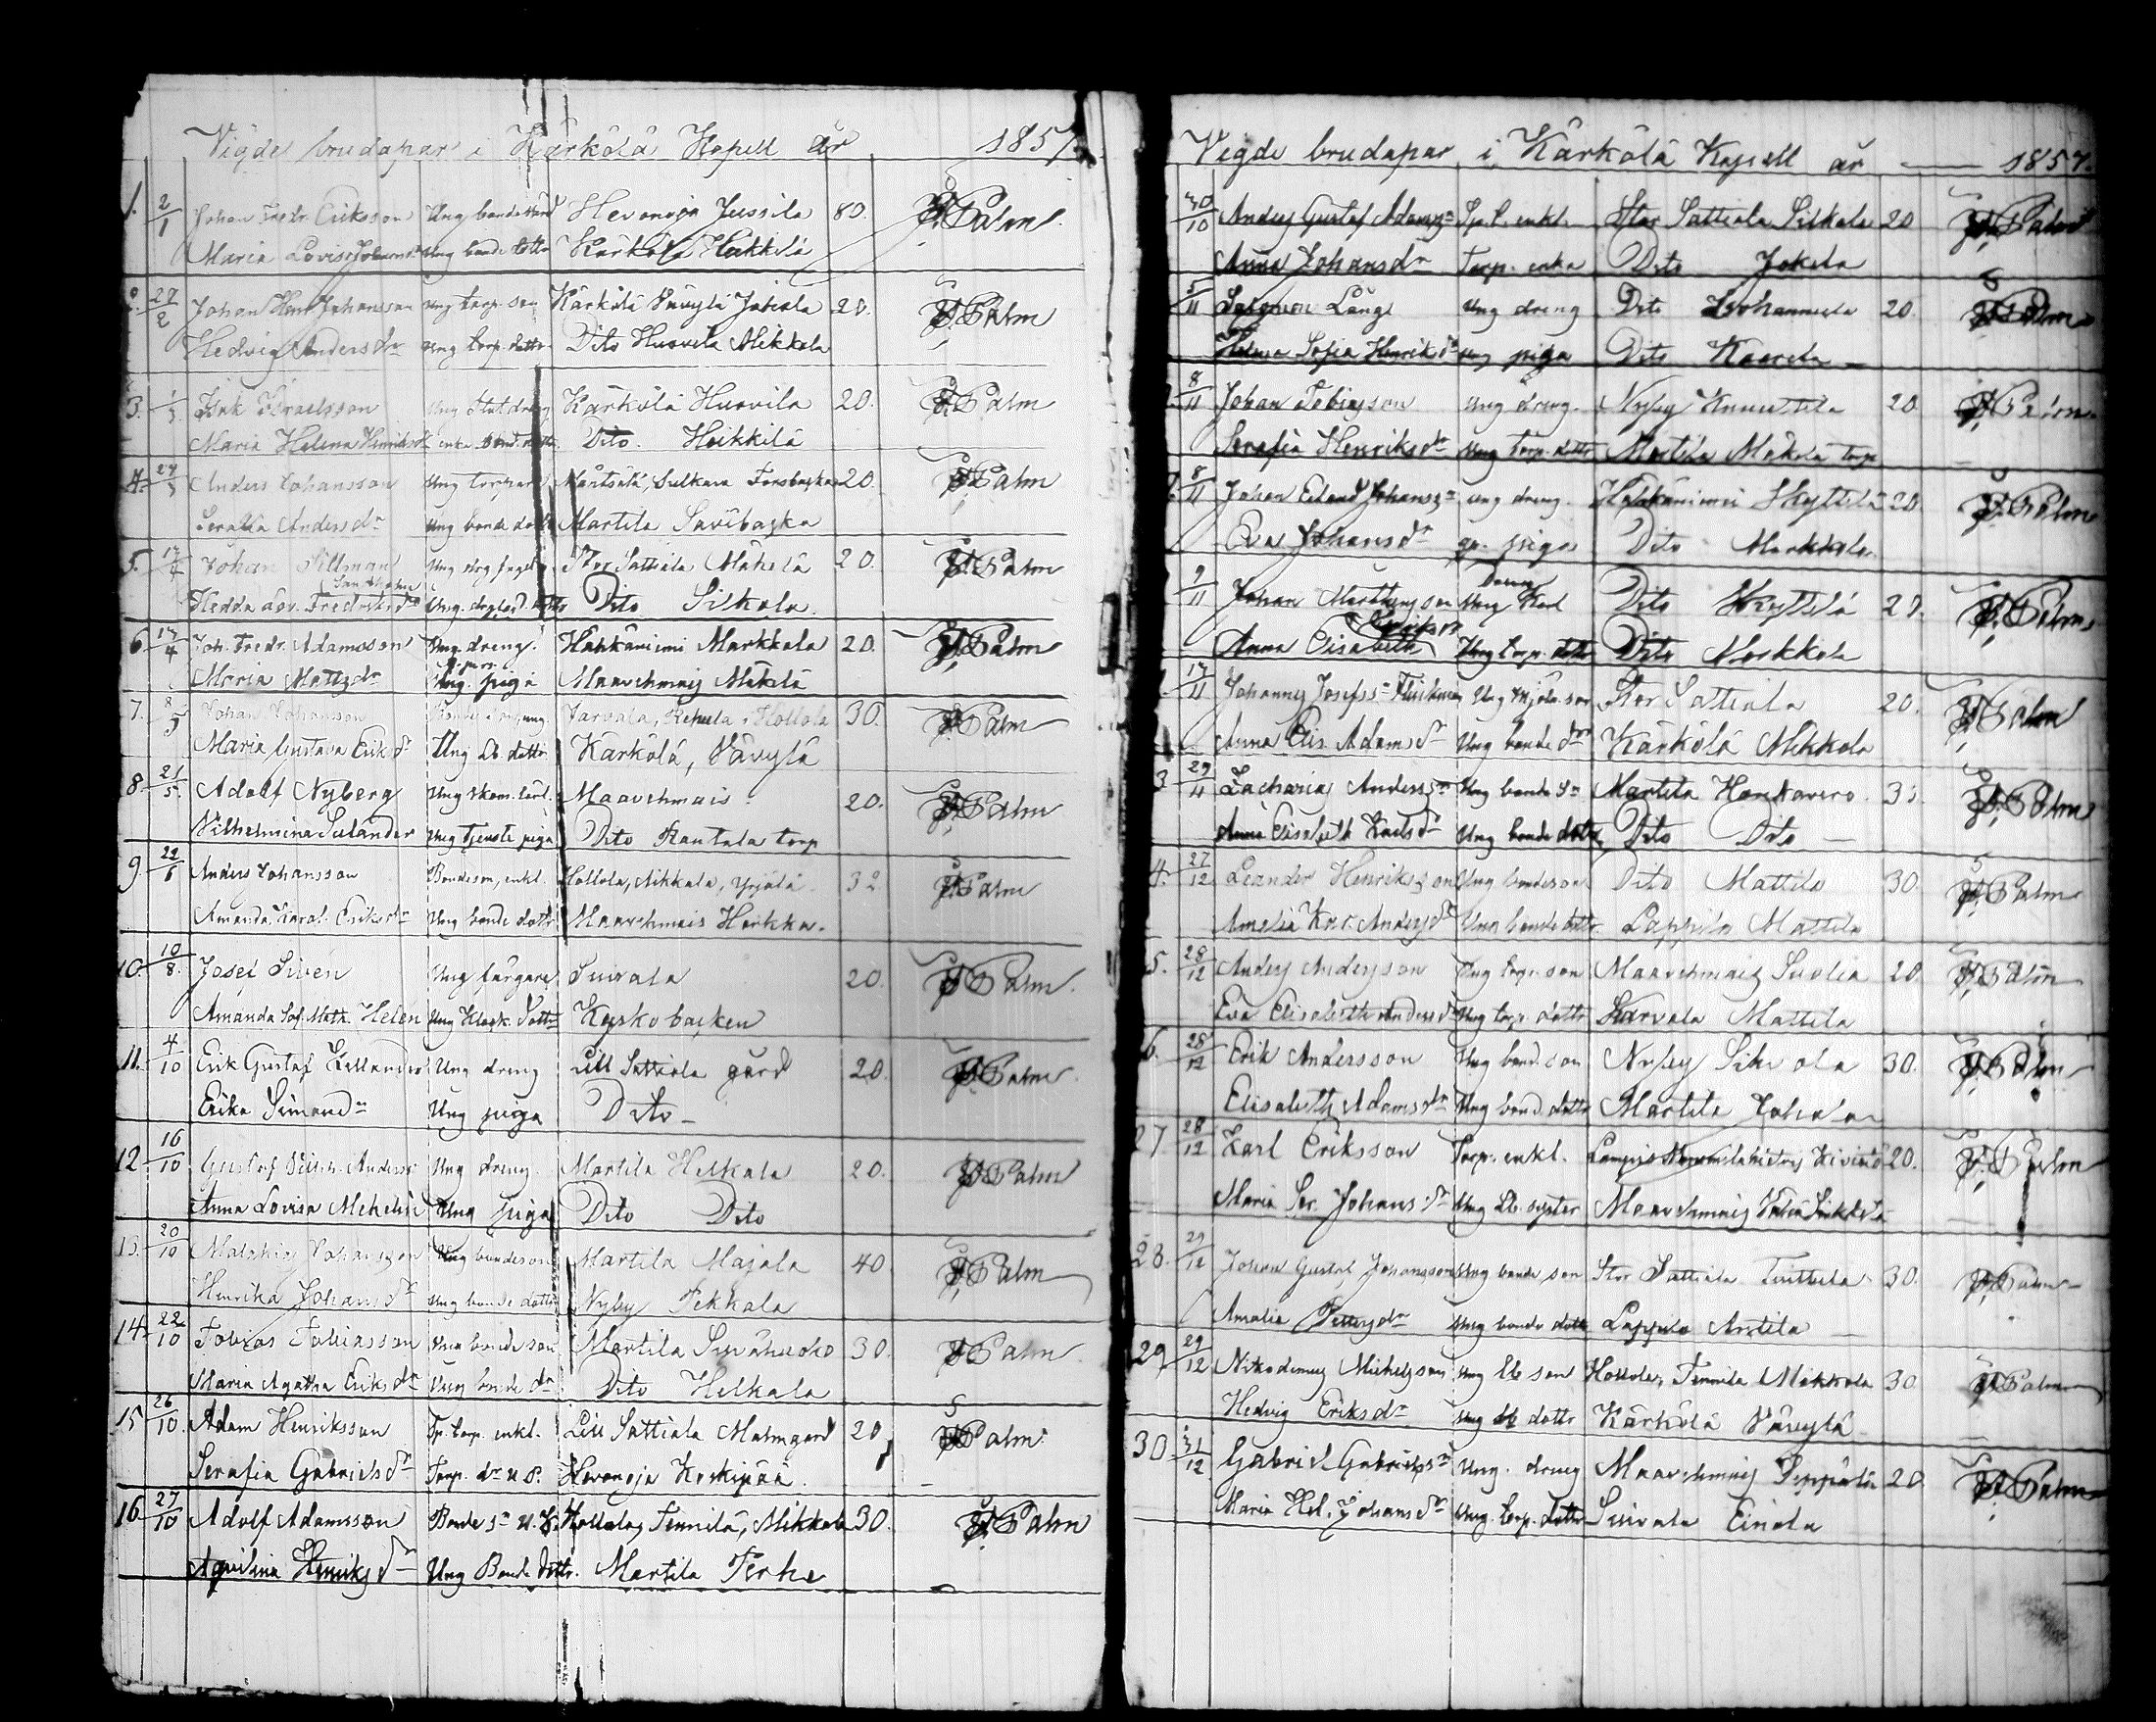 Vigde brudapar i Kärkölä Kapell år 1857.
1. 2/1 Johan Fredr. Eriksson Ung bonde Hevonoja Jussila 80. Palm
Maria Lovisa Ung bonde dottr Kärkölä Heikkilä
2. 27/2 Johan Henr. Johansson Ung torp. son Kärkölä Säyvylä Jokiola 20. Palm
Hedvig Andersdr Ung torp. dottr. Dito Huovila Mikkola
3. Isak Israelsson Ung Statdreng Kärkölä Huovila 20. Palm
Maria Helena enka Dito. Heikkilä
4. Anders Johansson Ung torpare Mäntsälä, Sulkava Forsbacka 20. Palm
Serafia Andersdr Ung bonde dottr Martila Savibacka
5. 17/4 Johan Sillman Ung Stor Sattiala Mäkelä 20. Palm
Hedda Lov. Fredriksdr Ung. Dito Silkola.
6. 17/4 Joh. Fredr. Adamsson Ung. dreng. Hähkäniemi Markkola 20. Palm
Maria Mattsdr Ung. piga Maavehmais Mäkelä
7. 8/5 Johan Johansson Järvala, Hollola 30. Palm
Maria Gustava Eriksdr Ung Lb. dottr Kärkölä, Säyvylä
8. 21/5. Adolf Nyberg Ung skom. lärl. Maavehmais 20. Palm
Vilhelmina Sulander Ung tjenste piga Dito Rantala torp
9. 22/6 Anders Johansson Bondeson, enkl. Hollola, Nikkala, Yrjölä 32. Palm
Amanda Karol. Eriksdr Ung bonde dottr Maavehmais Heikka.
10. 10/8. Josef Sivén Ung färgare Suivala 20. Palm.
Amanda Sof. Math. Helén Ung Klock. dottr Kyrkobacken
11. 4/10 Erik Gustaf Kellander Ung dreng Lill Sattiala gård 20. Palm.
Erika Simonsdr Ung piga Dito
12. 16/10 Gustaf Anderss. Ung dreng. Martila Helkala 20. Palm
Anna Lovisa Mehelin Ung piga Dito Dito
13. 20/10 Malakias Johansson Ung bondeson Martila Majala 40 Palm
Henrika Johansdr Ung bonde dottr Nyby Pekkala
14. 22/10 Tobias Tobiasson Ung bondeson Martila 30. Palm.
Maria Agatha Eriksdr Ung bonde dr. Dito Helkala
15 26/10. Adam Henriksson Sp. torp. enkl. Lill Sattiala Malmgård 20 Palm
Serafia Gabrielsdr Torp. dr Hevonoja Koskipää.
16. 27/10 Adolf Adamsson Bonde sn Hollola, Tennilä, Mikkola 30. Palm
Aqvilina Henriksdr Ung Bonde dottr. Martila Perhe
Vigde brudapar i Kärkölä Kapell år 1857.
30/10 Anders Gustaf Adamsson enkl. Stor Sattiala Silkola 20 Palm
Anna Johansdr Torp. enka Dito Jokela
5/11 Salomon Lång Ung dreng Dito Juhannula 20. Palm
Helena Sofia Henriksdr Ung piga Dito Kaarela
8/11 Johan Tobiasson Ung dreng. Nyby Knuutila 20. Palm
Serafia Henriksdr Ung torp. dottr Martila Mäkelä torp
8/11 Johan Erland Johanssn Ung dreng. Hähkäniemi Skyttilä 20. Palm
Eva Johansdr piga Dito Markkola.
9/11 Johan Ung Karl Dito Skyttilä 20. Palm
Anna Elisabeth Eriksdr Ung torp. dottr Dito Markkola
17/11 Johannes Josefss. Ung mjöln. son Stor Sattiala 20. Palm
Anna Elis. Adamsdr Ung bonde dr Kärkölä Mikkola
3 29/11 Zacharias Anderssn Ung bonde sn Martila Honkavero. Palm
Anna Elisabeth Karlsdr Ung bonde dottr Dito Dito
4. 27/12 Leander Henriksson Ung bondeson Dito Mattila 30. Palm
Amelia Kar. Andersdr Ung bonde dottr. Lappila Mattila
5. 28/12 Anders Andersson Ung torp. son Maavehmais Suolia 20 Palm
Eva Elisabeth Andersdr Ung torp. dottr Mattila
6. 28/12 Erik Andersson Ung bond. son Nyby 30. Palm
Elisabeth Adamsdr Ung bond. dottr Martila
27 28/12 Karl Eriksson Torp. enkl. 20. Palm
Maria Ser. Johansdr Ung Lb. syster Maavehmais
28. 29/12 Johan Gustaf Johansson Ung bonde son Stor Sattiala Tuittula 30. Palm
Amalia Pettersdr Ung bonde dottr Lappila Anttila
29 29/12 Nikodemus Michelsson Ung Lb son Hollola, Tennilä Mikkola 30 Palm
Hedvig Eriksdr Ung Lb dottr Kärkölä Säyvylä
30 31/12 Gabriel Gabrielssn Ung. dreng Maavehmais Seppälä 20. Palm
Maria Hel. Johansdr Ung. torp. dottr Suivala Einola